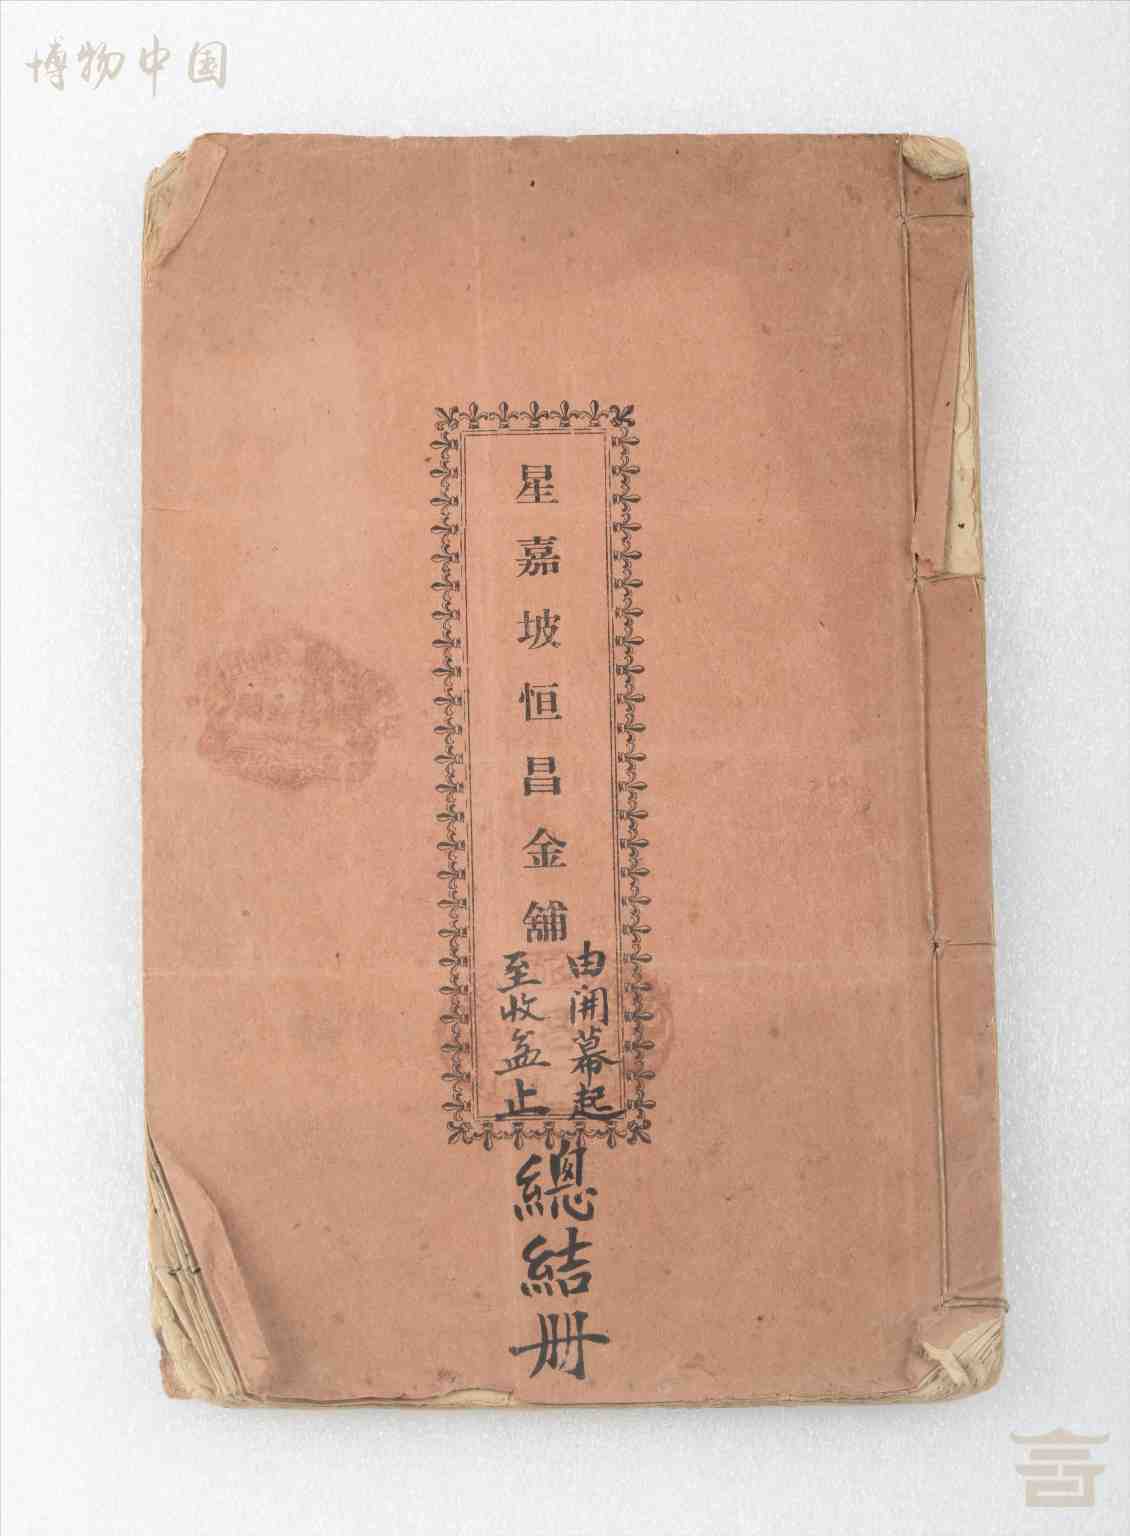 博物中国
星嘉坡恒昌金舖
由開幕起
至收盆止
總結册